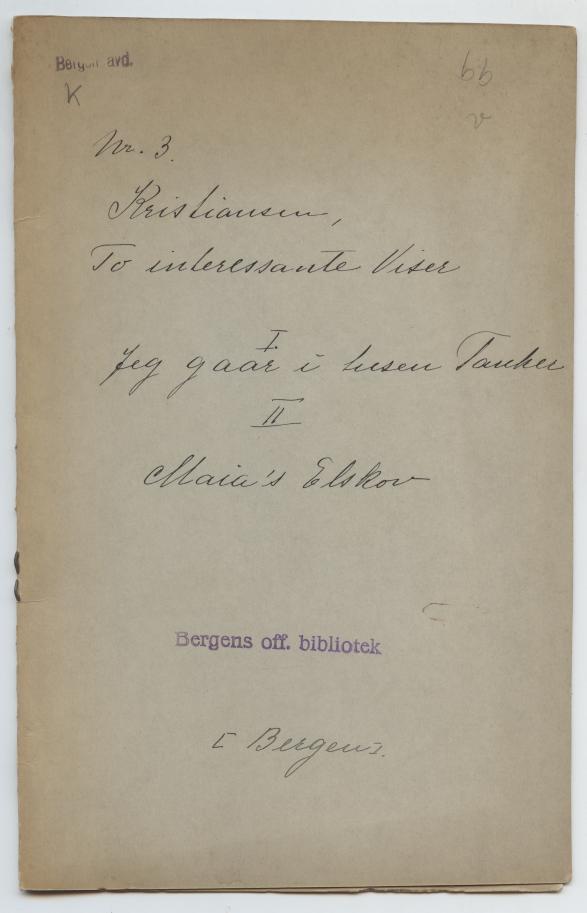 Bergen avd.
K
bb
v
Nr. 3.
Kristiansen,
To interessante Viser
I.
Jeg gaar i tusen Tanker
II
Maia's Elskov
Bergens off. bibliotek
[Bergen].